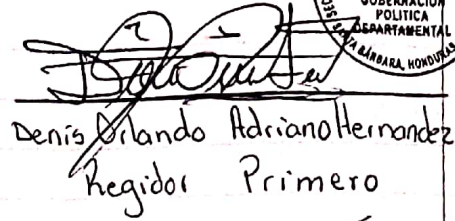 GOBERNACION
POLITICA
DEPARTAMENTAL
BARBARA, HONDURAS
Denis Orlando Adriano Hernandez
Regidor Primero